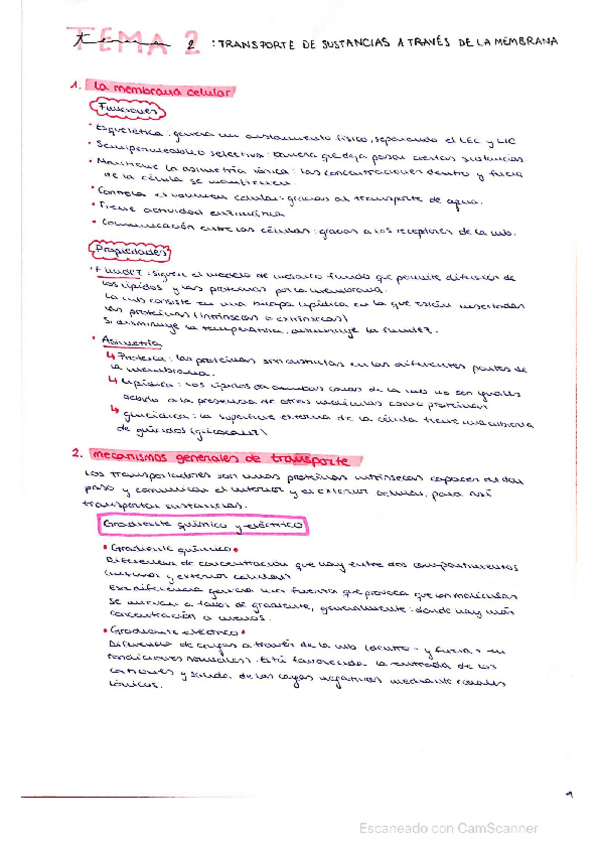 TEMA 2
tema 2 : TRANSPORTE DE SUSTANCIAS A TRAVÉS DE LA MEMBRANA
1. la membrana celular
Funciones
• Esquelética : genera un aislamiento físico, separando el LEC y LIC
• Semipermeable o selectiva : barrera que deja pasar ciertas sustancias
• Mantiene la asimetría iónica : las concentraciones dentro y fuera
de la célula se mantienen
• Controla el volumen celular : gracias al transporte de agua.
• Tiene actividad enzimática
• Comunicación entre las células : gracias a los receptores de la mb.
Propiedades
• Fluidez : siguen el modelo de mosaico fluido que permite difusión de
los lípidos y las proteínas por la membrana.
La mb consiste en una bicapa lipídica en la que están insertadas
las proteínas (intrínsecas o extrínsecas)
Si disminuye la temperatura, disminuye la fluidez.
• Asimetría
↳ Proteica : las proteínas son distintas en las diferentes partes de
la membrana.
↳ Lipídica : los lípidos de ambas caras de la mb no son iguales
debido a la presencia de otras moléculas como proteínas
↳ glucídica : la superficie externa de la célula tiene una cubierta
de glúcidos (glicocaliz)
2. mecanismos generales de transporte
Los transportadores son unas proteínas intrínsecas capaces de dar
paso y comunicar el interior y el exterior celular, para así
transportar sustancias.
Gradiente químico y eléctrico
• Gradiente químico •
Diferencia de concentración que hay entre dos compartimentos
(interno y externo celular)
Esa diferencia genera una fuerza que provoca que las moléculas
se muevan a favor de gradiente, generalmente : donde hay más
concentración a menos.
• Gradiente eléctrico •
Diferencia de cargas a través de la mb (dentro - y fuera + en
condiciones normales). Está favorecida la entrada de los
cationes y salida de las cargas negativas mediante canales
iónicos.
1
Escaneado con CamScanner